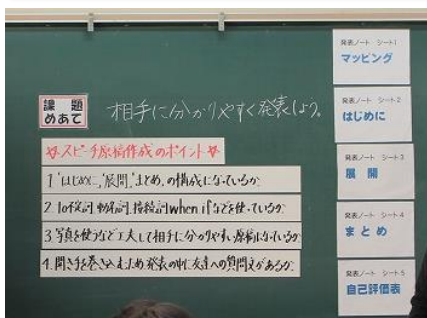 課題
めあて
相手に分かりやすく発表しよう。
☆スピーチ原稿作成のポイント☆
1.「はじめに」「展開」「まとめ」の構成になっているか。
2. to不定詞、動名詞、接続詞when ifなどを使っているか。
3. 写真を使うなど工夫して相手に分かりやすい原稿になっているか
4. 聞き手を巻き込むため発表の中に友達への質問文があるか。
発表ノート シート1
マッピング
発表ノート シート2
はじめに
発表ノート シート3
展開
発表ノート シート4
まとめ
発表ノート シート5
自己評価表